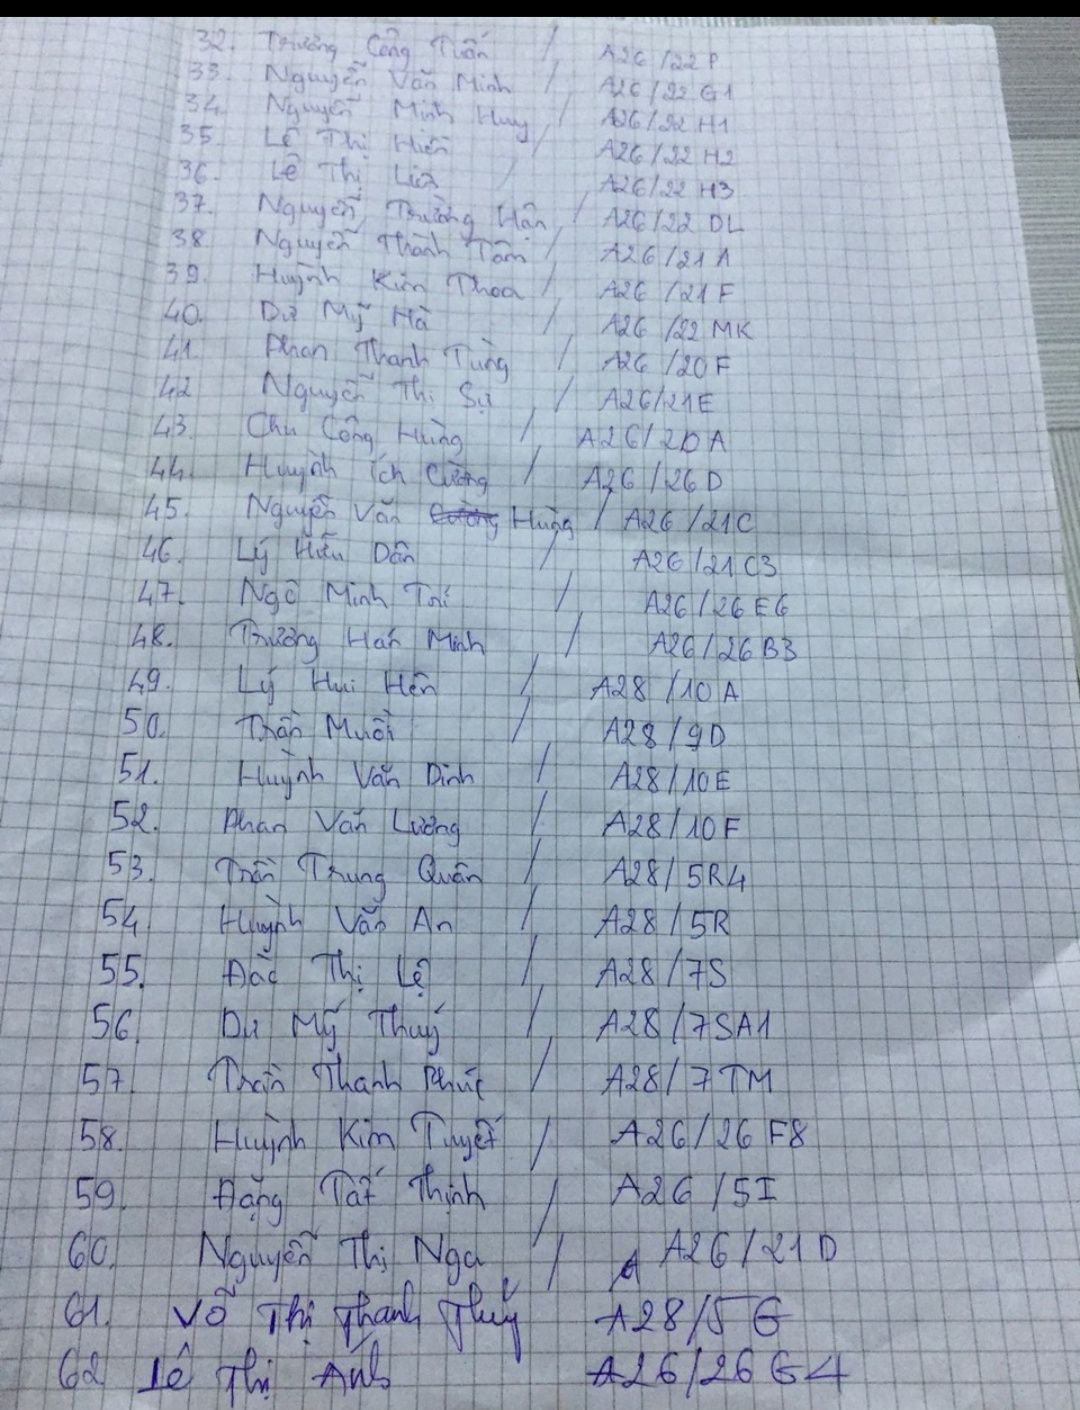 32. Trương Công Tuấn / A26/22P
33. Nguyễn Văn Minh / A26/22G1
34. Nguyễn Minh Huy / A26/22H1
35. Lê Thị Hiền / A26/22H2
36. Lê Thị / A26/22H3
37. Nguyễn Trường Hận / A26/22DL
38 Nguyễn Thành Tâm / A26/21A
39. Huỳnh Kim Thoa / A26/21F
40. Dư Mỹ Hà / A26/22MK
41. Phan Thanh Tùng / A26/20F
42 Nguyễn Thị Sự / A26/21E
43. Chu Công Hùng / A26/20A
44. Huỳnh Ích Cường / A26/26D
45. Nguyễn Văn Cường Hùng / A26/21C
46. Lý Hữu Dân / A26/21C3
47. Ngô Minh Trí / A26/26E6
48. Trương Hán Minh / A26/26B3
49. Lý Hui Hên / A28/10A
50. Trần Mười / A28/9D
51. Huỳnh Văn Dinh / A28/10E
52. Phan Văn Lương / A28/10F
53. Trần Trung Quân / A28/5R4
54 Huỳnh Văn An / A28/5R
55. Đắc Thị Lệ / A28/7S
56. Dư Mỹ Thuý / A28/7SA1
57. Trần Thanh Phúc / A28/7TM
58. Huỳnh Kim Tuyết / A26/26F8
59. Đặng Tất Thịnh / A26/5I
60. Nguyễn Thị Nga / A A26/21D
61. Võ Thị Thanh Thuý A28/5G
62 Lê Thị Ánh A26/26G4